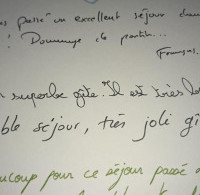 passé un excellent séjour dans
! Dommage de partir...
François.
superbe gîte. Il est très
ble séjour, très joli gî
ucoup pour ce séjour passé